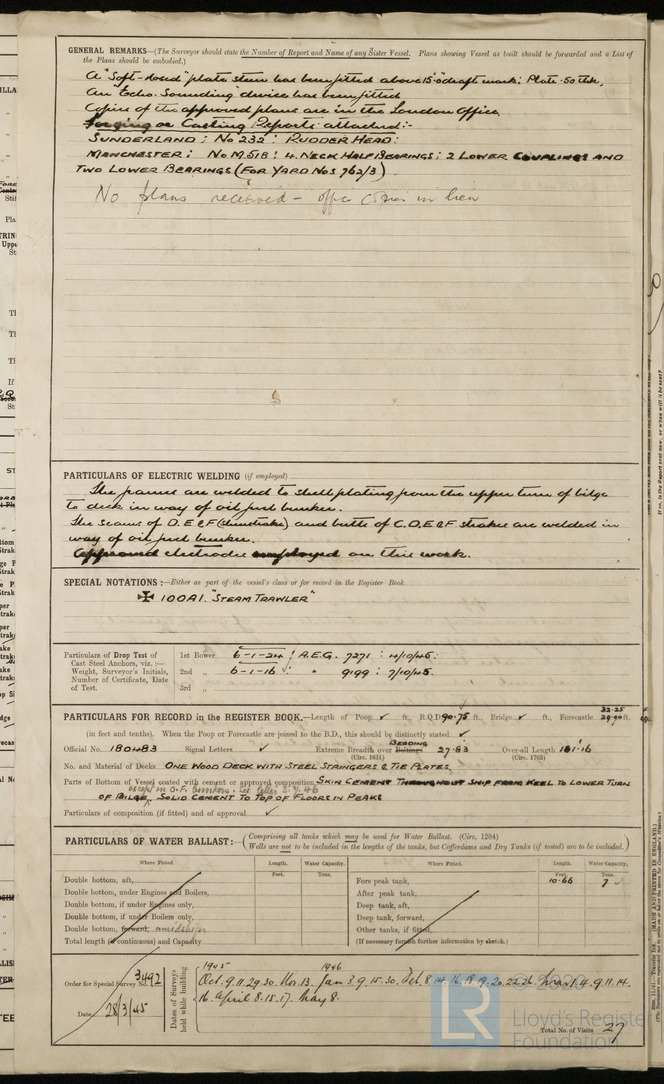 GENERAL REMARKS—(The Surveyor should state the Number of Report and Name of any Sister Vessel. Plans showing Vessel as built should be forwarded and a List of
the Plans should be embodied.)
A "Soft-nosed" plate stem has been fitted above 15'-0" draft mark: Plate .50 thk.
An "Echo. Sounding" device has been fitted
Copies of the approved plans are in the London Office.
Forging or Casting Reports attached:-
SUNDERLAND: No 232: RUDDER HEAD:
MANCHESTER: No M.51B: 4. NECK HALF BEARINGS; 2 LOWER COUPLINGS AND
TWO LOWER BEARINGS (FOR YARD NOS 762/3)
No plans received - office copies in lieu
PARTICULARS OF ELECTRIC WELDING (if employed)
The frames are welded to shell plating from the upper turn of bilge
to deck in way of oil fuel bunker.
The seams of D.E & F (Sheerstrake) and butts of C.D.E & F strakes are welded in
way of oil fuel bunker.
Approved electrodes employed on this work.
SPECIAL NOTATIONS:—Either as part of the vessel's class or for record in the Register Book
✠ 100A1. "STEAM TRAWLER"
Particulars of Drop Test of
Cast Steel Anchors, viz.:—
Weight, Surveyor's Initials,
Number of Certificate, Date
of Test.
1st Bower 6-1-24 : A.E.G. 7271 : 4/10/45:
2nd „ 6-1-16 : " 9199 : 7/10/45.
3rd „
32.25
PARTICULARS FOR RECORD in the REGISTER BOOK.—Length of Poop ✓ ft., R.Q.D. 90.75 ft., Bridge ✓ ft., Forecastle ft.
(in feet and tenths). When the Poop or Forecastle are joined to the B.D., this should be distinctly stated ✓
BEADING
Official No. 180483 Signal Letters ✓ Extreme Breadth over Beltings 27.83 Over-all Length 181.16
(Circ. 1611) (Circ. 1703)
No. and Material of Decks ONE WOOD DECK WITH STEEL STRINGERS & TIE PLATES
Parts of Bottom of Vessel coated with cement or approved composition SKIN CEMENT THROUGHOUT SHIP FROM KEEL TO LOWER TURN
except in O.F. bunkers. See letter
OF BILGE. SOLID CEMENT TO TOP OF FLOORS IN PEAKS
Particulars of composition (if fitted) and of approval ✓
PARTICULARS OF WATER BALLAST:— (Comprising all tanks which may be used for Water Ballast. (Circ. 1284)
Wells are not to be included in the lengths of the tanks, but Cofferdams and Dry Tanks (if tested) are to be included.)
Where Fitted. Length. Water Capacity. Where Fitted. Length. Water Capacity.
Feet. Tons. Feet. Tons.
Double bottom, aft, Fore peak tank, 10.66 7
Double bottom, under Engines and Boilers, After peak tank,
Double bottom, if under Engines only, Deep tank, aft,
Double bottom, if under Boilers only, Deep tank, forward,
Double bottom, forward, amidships Other tanks, if fitted,
Total length (if continuous) and Capacity (If necessary furnish further information by sketch.)
Order for Special Survey No. 3492
Date 28/3/45
Dates of Surveys
held while building
1945 1946
Oct. 9. 11. 29. 30. Nov. 13. Jan 3. 9. 15. 30. Feb. 8. 14. 16. 18. 19. 20. 22. 26. Mar. 1. 4. 9. 11. 14.
16. April 8. 15. 17. May 8.
Total No. of Visits 27
© 2020
Lloyd's Register
Foundation
LR